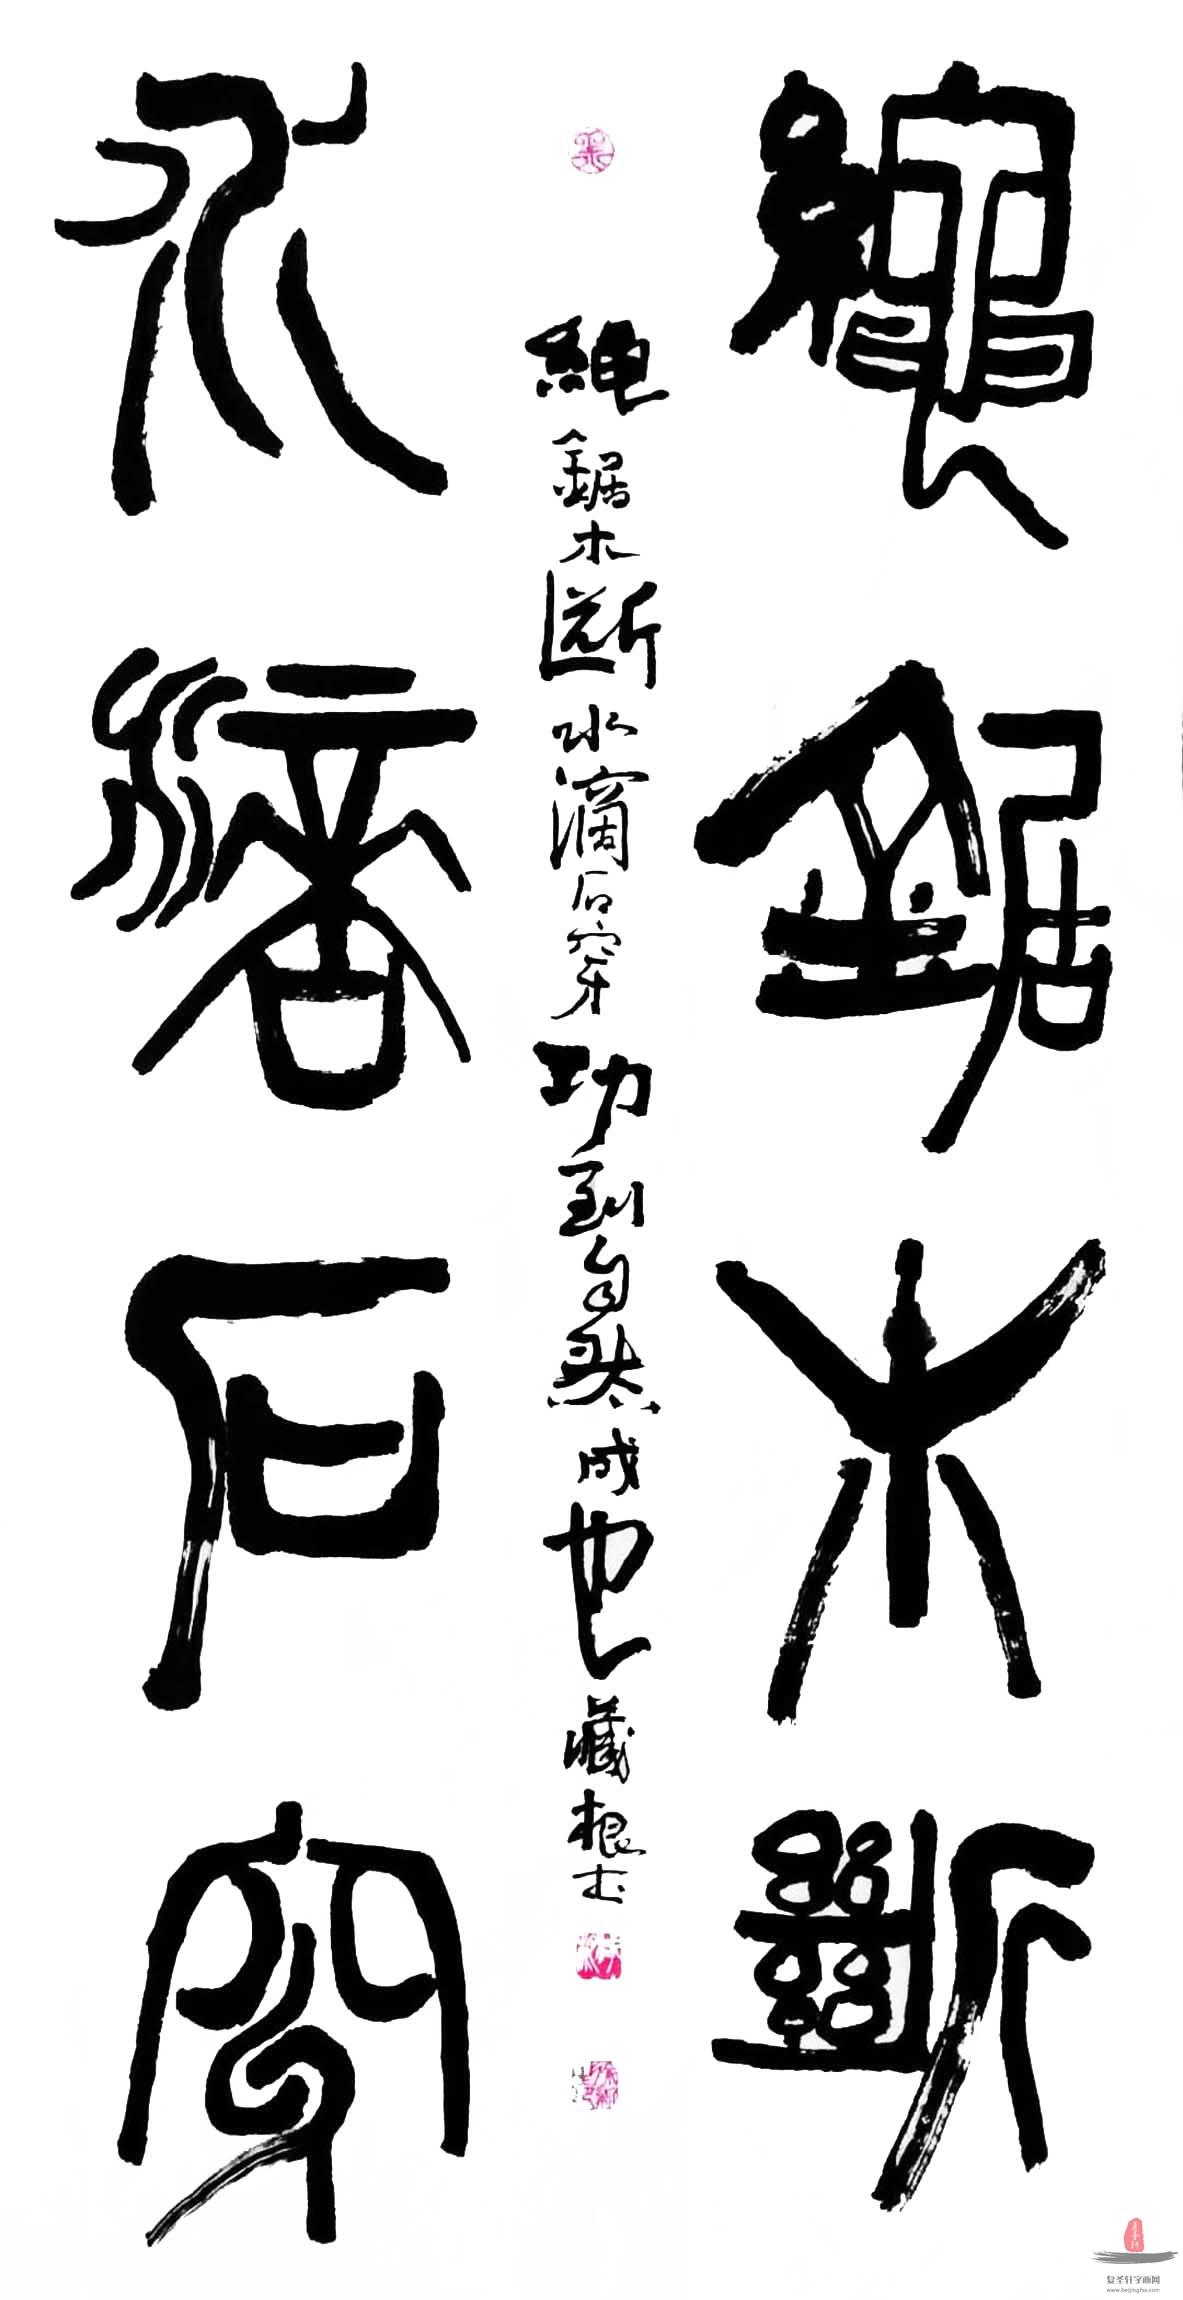 繩鋸木斷
水滴石穿
繩鋸木斷水滴石穿功到自然成也藏根书
复圣轩字画网
www.beijingfsx.com